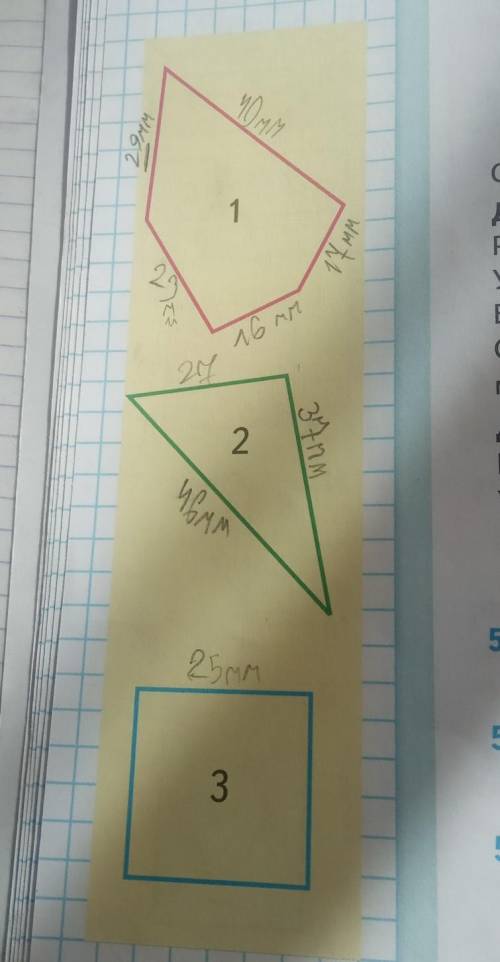 40мм
29мм
1
17мм
23мм
16 мм
27
37мм
2
46мм
25мм
3